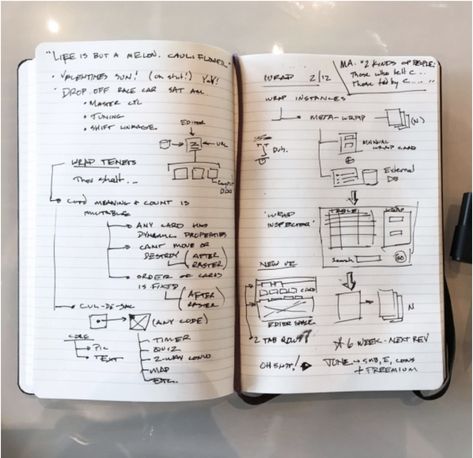 "LIFE IS BUT A MELON. CAULIFLOWER."
• VALENTINES SUN! (oh shit!) YAY!
• DROP OFF RACE CAR SAT AM
• MASTER CYL
• TUNING
• SHIFT LINKAGE.
EDITOR
URL
WRAP TENETS
Thou shalt...
CARD MEANING & COUNT IS
IMMUTABLE
ANY CARD HAS
DYNAMIC PROPERTIES
CAN'T MOVE OR
DESTROY (AFTER
RASTER)
ORDER OF CARDS
IS FIXED (AFTER
RASTER)
CUL-DE-SAC
(ANY CODE)
CORE
PIC
TEXT
TIMER
QUIZ
2-WAY CONVO
MAP
ETC.
WRAP 2/12
MA: "2 KINDS OF PEOPLE:
Those who tell C...
Those fed by C...."
WRAP INSTANCES
META-WRAP
(N)
MANUAL
WRAP CARD
External
DB
"WRAP
INSPECTOR"
TABLE
WRAP
Search
GO
NEW IE
CARD
EDITOR SPACE
N
2 TAB ROWS?
* 6 WEEK - NEXT REV
OH SHIT!
JUNE → SMB, E, CONS
+ FREEMIUM